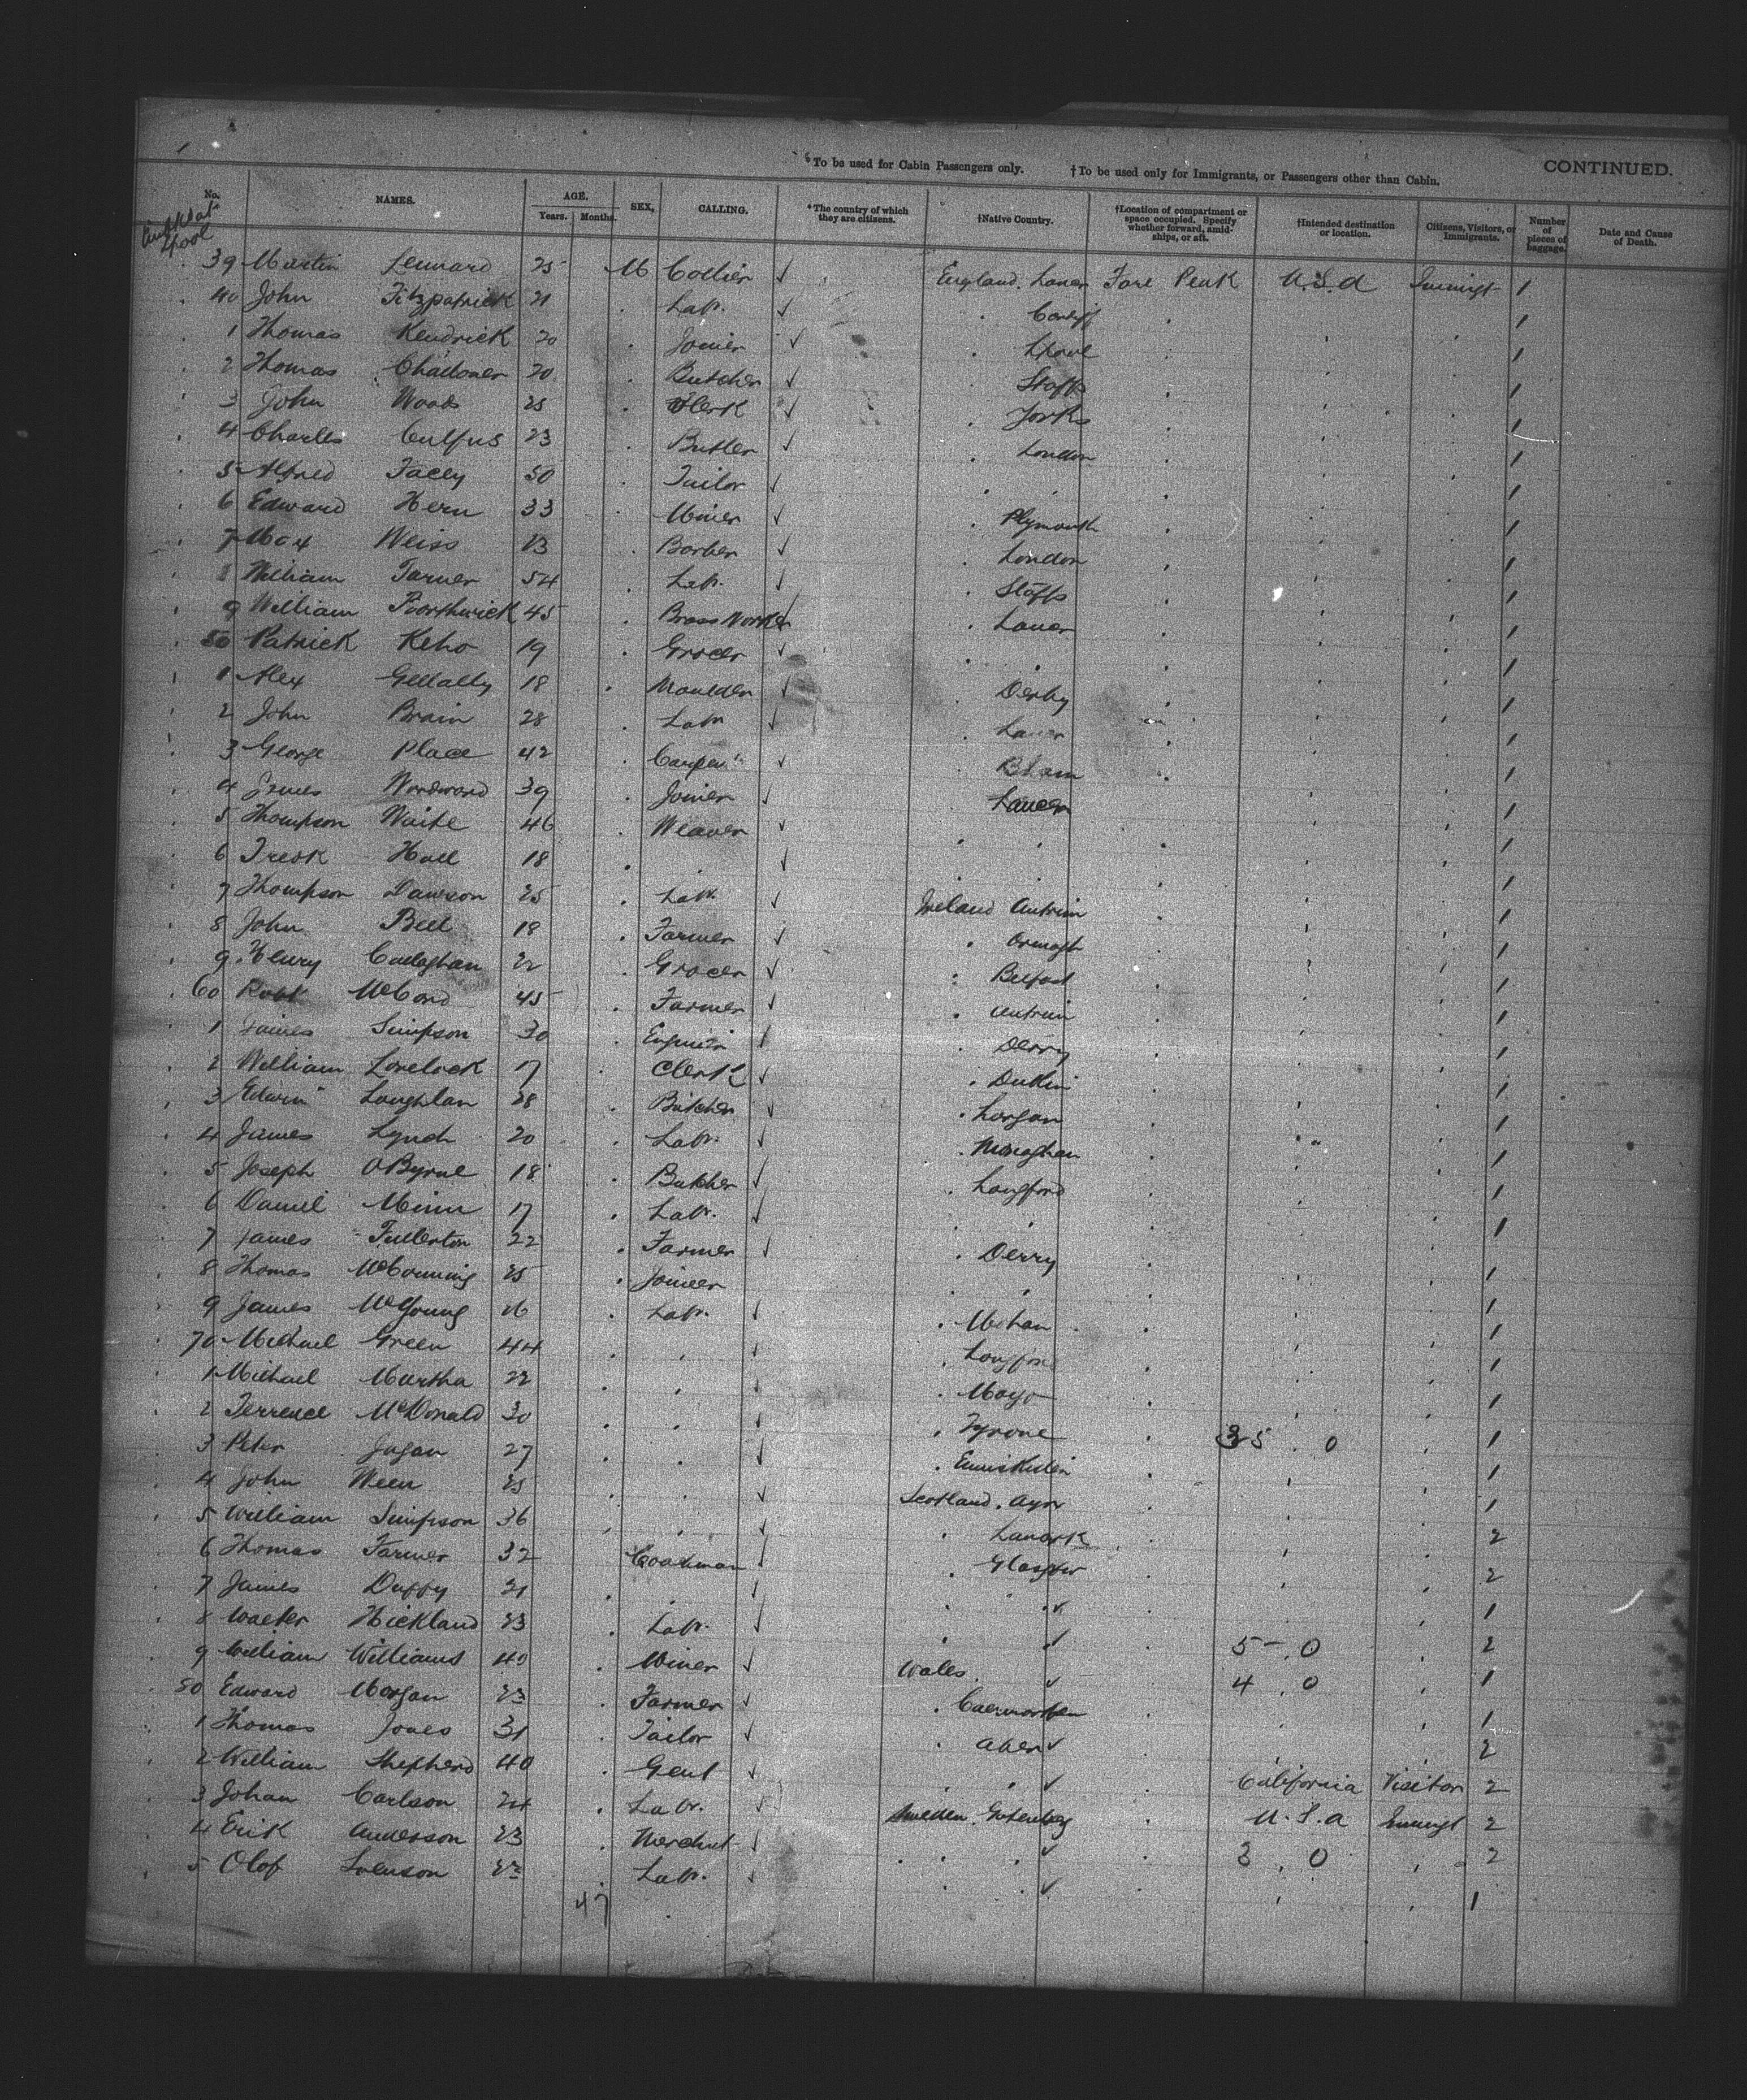 *To be used for Cabin Passengers only. †To be used only for Immigrants, or Passengers other than Cabin. CONTINUED.
No. NAMES. AGE. Years. Months. SEX. CALLING. *The country of which they are citizens. †Native Country. †Location of compartment or space occupied. Specify whether forward, amidships, or aft. †Intended destination or location. Citizens, Visitors, or Immigrants. Number of pieces of baggage. Date and Cause of Death.
39 Martin Lennard 25 M Collier ✓ England. Fore Peak U.S.A 1
40 John Fitzpatrick 21 Labr. ✓ Cardiff 1
1 Thomas Kendrick 20 Joiner ✓ Lpool 1
2 Thomas Challoner 20 Butcher ✓ Staffs 1
3 John Woods 25 Clerk ✓ Yorks 1
4 Charles Culfus 23 Butler ✓ London 1
5 Alfred Facey 30 Tailor ✓ 1
6 Edward Hern 33 Miner ✓ Plymouth 1
7 Max Weiss 13 Barber ✓ London 1
William 54 Labr. ✓ Staffs 1
9 William 45 Brass Worker Lancr 1
50 Patrick Keho 19 Grocer ✓ 1
1 Alex 18 Moulder ✓ Derby 1
2 John Brain 28 Labr ✓ 1
3 George Place 42 ✓ Bham 1
4 James 39 Joiner ✓ Lancr 1
5 Thompson Waite 46 Weaver ✓ 1
6 Fredk Hall 18 ✓ 1
7 Thompson Dawson 25 Labr. ✓ Ireland Antrim 1
8 John Bell 18 Farmer ✓ Armagh 1
9 Henry Callaghan 22 Grocer ✓ Belfast 1
60 Robt McCord 45 Farmer ✓ Antrim 1
1 James Simpson 30 ✓ Derry 1
2 William Lovelock 17 Clerk ✓ Dublin 1
3 Edwin Loughlan 28 Butcher ✓ Lurgan 1
4 James Lynch 20 Labr. ✓ Monaghan 1
5 Joseph OByrne 18 Butcher ✓ Longford 1
6 Daniel 17 Labr. ✓ 1
7 James Fullerton 22 Farmer ✓ Derry
8 Thomas 25 Joiner 1
9 James McYoung 26 Labr. ✓ 1
70 Michael Green 44 ✓ Longford 1
1 Michael Murtha 22 ✓ Mayo 1
2 Terrence McDonald 30 ✓ Tyrone 35 . 0 1
3 Peter 27 ✓ 1
4 John 25 ✓ Scotland. Ayr 1
5 William Simpson 36 ✓ Lanark 2
6 Thomas Farmer 32 Coachman ✓ Glasgow 2
7 James Duffy 21 ✓ ✓ 1
8 Walter Hickland 23 Labr. ✓ ✓ 5 . 0 2
9 William Williams 40 Miner ✓ Wales. ✓ 4 . 0 1
80 Edward Morgan 23 Farmer ✓ Caermarthen 1
1 Thomas Jones 31 Tailor ✓ Aber ✓ 2
2 William Shepherd 40 Gent ✓ ✓ California Visitor 2
3 Johan Carlson 24 Labr. ✓ Sweden. U.S.A 2
4 Erik Anderson 23 ✓ ✓ 3 . 0 2
5 Olof Svenson Labr. ✓ ✓ 1
47